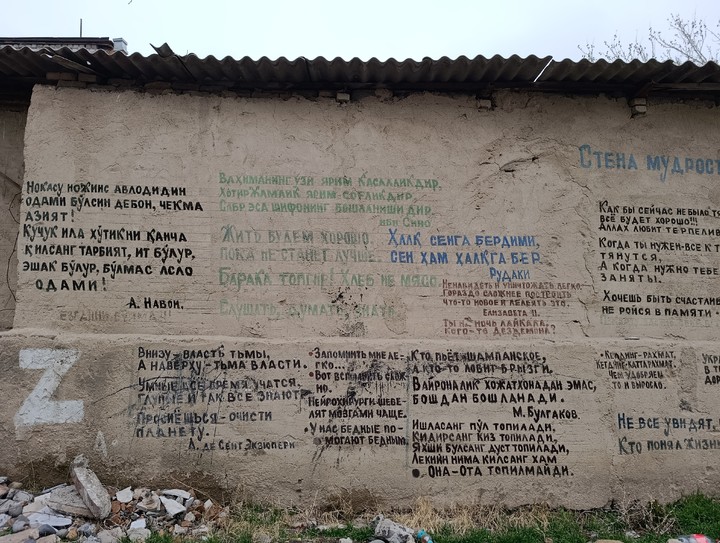 Стена мудрост
Нокасу ножинс авлодидин
одами бўлсин дебон, чекма
азият!
Кучук ила хўтикни қанча
қилсанг тарбият, ит бўлур,
эшак бўлур, бўлмас асло
одами!
А. Навои.
Ваҳиманинг ўзи ярим касалликдир,
Хотиржамлик ярим соғликдир,
Сабр эса шифонинг бошланишидир.
Ибн Сино
Жить будем хорошо,
пока не станет лучше.
Барака топгир! Хлеб не мясо.
Слушать, думать, знать.
Халқ сенга бердими,
сен ҳам халқга бер.
Рудаки
Ненавидеть и уничтожать легко.
Гораздо сложнее построить
что-то новое и лелеять это.
Елизавета II.
Ты на ночь лайкала,
кого-то Дездемона?
Как бы сейчас не было
все будет хорошо!!!
Аллах любит терпелив
Когда ты нужен-все к т
тянутся,
А когда нужно тебе
заняты.
Хочешь быть счастлив
не ройся в памяти
Внизу-власть тьмы,
А наверху-тьма власти.
Умные все время учатся,
глупые и так все знают.
Проснёшься-очисти
планету.
А. де Сент Экзюпери
Z
Запомнить мне лег-
ко...
Вот вспомнить слож-
но.
Нейрохирурги шеве-
лят мозгами чаще.
У нас бедные по-
могают бедным.
Кто пьёт шампанское,
а кто-то ловит брызги.
Вайроналик хожатхонадан эмас,
бошдан бошланади.
М. Булгаков.
Ишласанг пул топилади,
Кидирсанг киз топилади,
Яхши булсанг дуст топилади,
Лекийн нима килсанг хам
Она-ота топилмайди.
Келдинг-рахмат,
кетдинг-каттарахмат.
Чем удобряем,
то и выросло.
Укр
в т
дов
Не все увидят,
Кто понял жизн